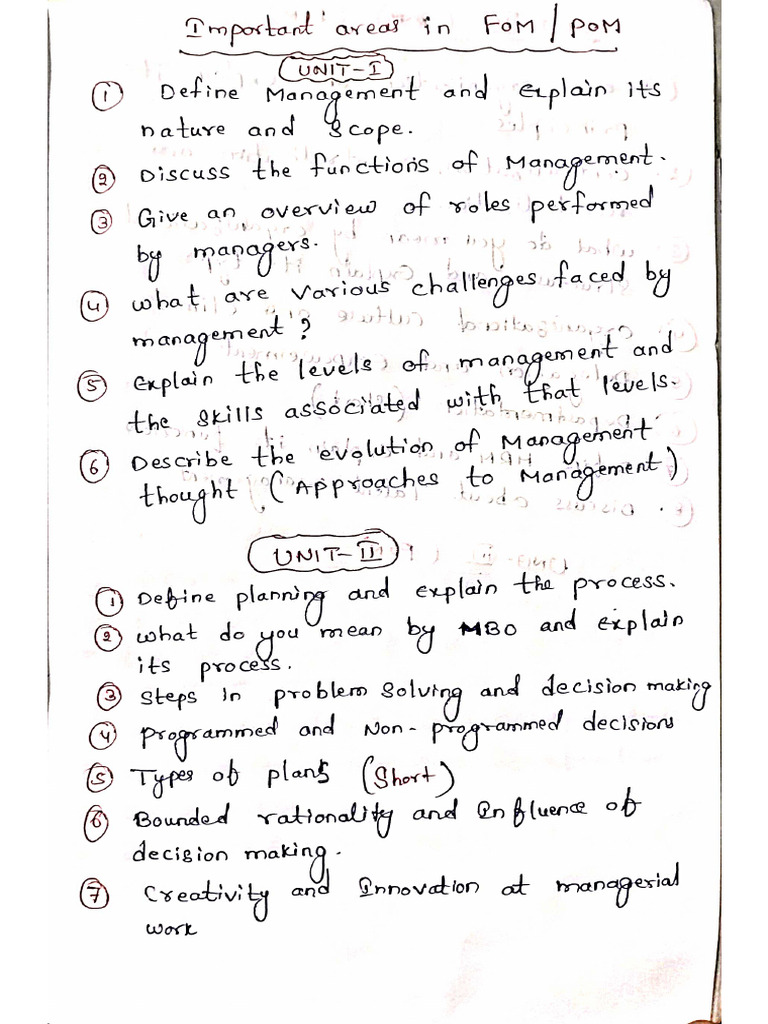 Important areas in FOM / POM
UNIT-I
① Define Management and explain its
nature and scope.
② Discuss the functions of Management.
③ Give an overview of roles performed
by managers.
④ what are various challenges faced by
management?
⑤ Explain the levels of management and
the skills associated with that levels.
⑥ Describe the evolution of Management
thought (Approaches to Management)
UNIT-II
① Define planning and explain the process.
② what do you mean by MBO and explain
its process.
③ Steps in problem solving and decision making
④ Programmed and Non-programmed decisions
⑤ Types of plans (Short)
⑥ Bounded rationality and Influence of
decision making.
⑦ Creativity and Innovation at managerial
work